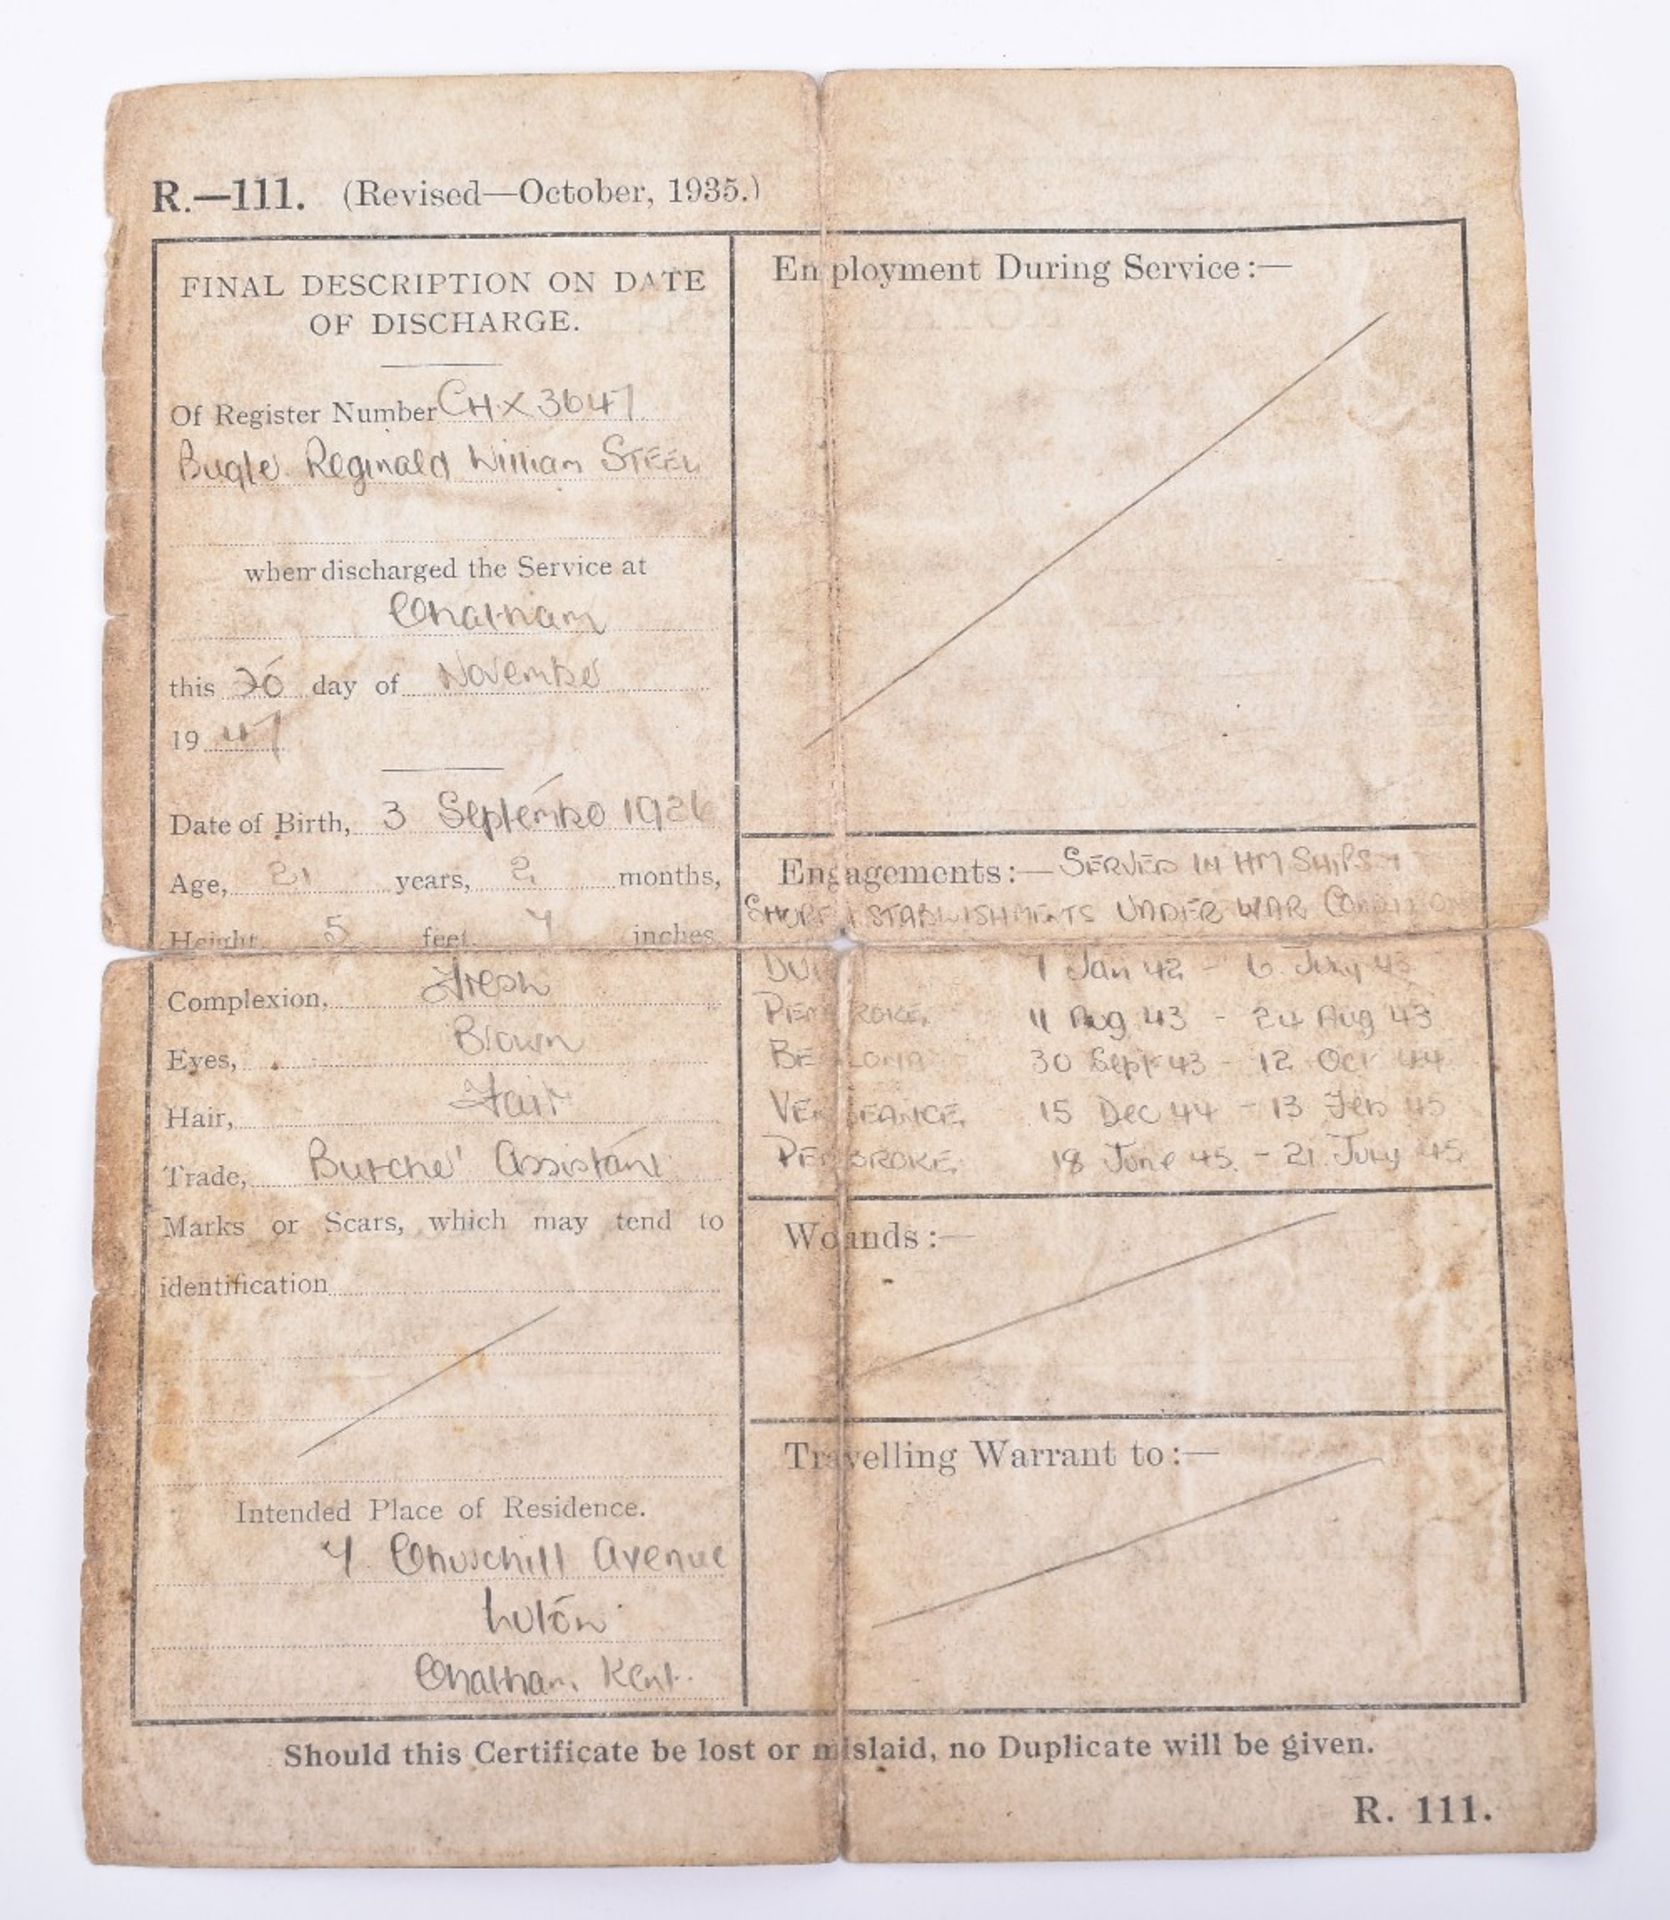 R.—111. (Revised—October, 1935.)
FINAL DESCRIPTION ON DATE
OF DISCHARGE.
Of Register Number CHX 3647
Bugle Reginald William STEEL
when discharged the Service at
Chatham
this day of November
19 47
Date of Birth, 3 September 1926
Age, 21 years, 2 months,
Height, 5 feet, 7 inches
Complexion, Fresh
Eyes, Brown
Hair, Fair
Trade, Butcher' Assistant
Marks or Scars, which may tend to
identification
Intended Place of Residence.
7 Churchill Avenue
Luton
Chatham. Kent.
Employment During Service:—
Engagements:— SERVED IN HM SHIPS +
SHORE ESTABLISHMENTS UNDER WAR CONDITIONS
Jan 42 - 6 July 43
PEMBROKE, 11 Aug 43 - 24 Aug 43
BELLONA 30 Sept 43 - 12 Oct 44
VENGEANCE, 15 Dec 44 - 13 Feb 45
PEMBROKE, 18 June 45. - 21 July 45
Wounds:—
Travelling Warrant to:—
Should this Certificate be lost or mislaid, no Duplicate will be given.
R. 111.